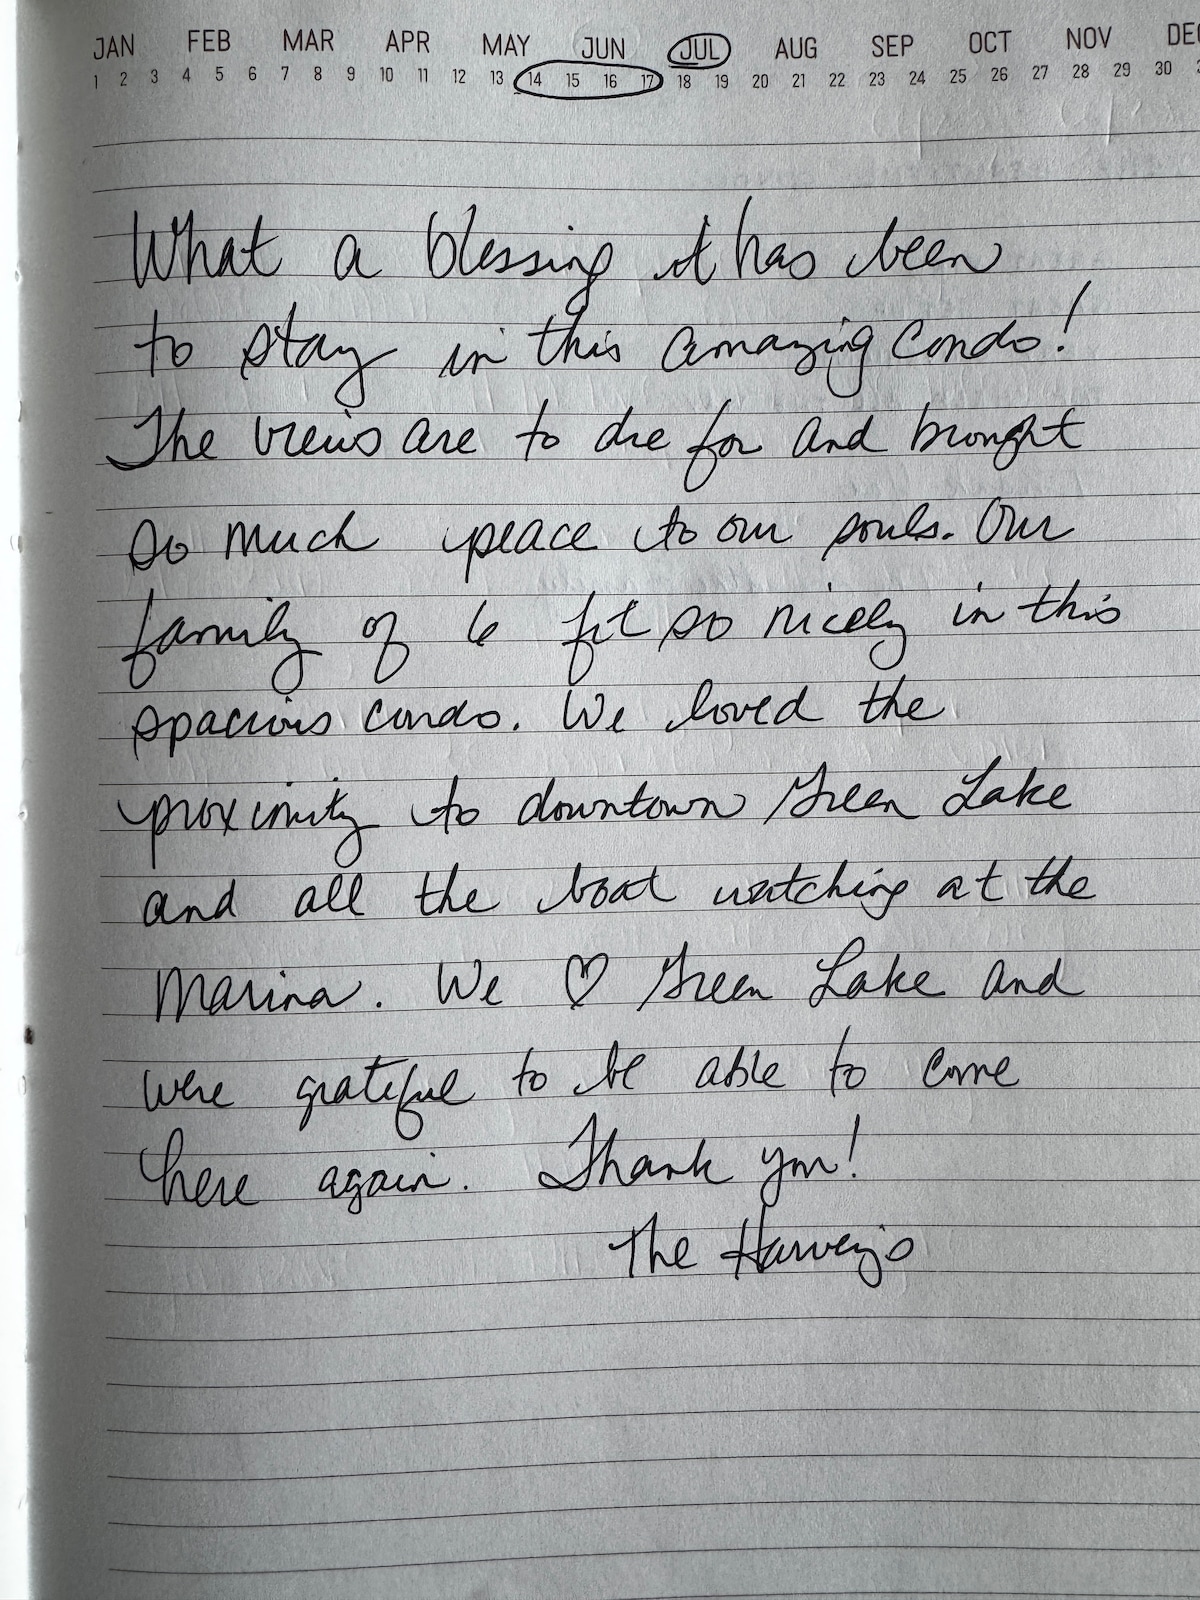 JAN FEB MAR APR MAY JUN JUL AUG SEP OCT NOV DEC
1 2 3 4 5 6 7 8 9 10 11 12 13 14 15 16 17 18 19 20 21 22 23 24 25 26 27 28 29 30
What a blessing it has been
to stay in this amazing condo!
The views are to die for and brought
so much peace to our souls. Our
family of 6 fit so nicely in this
spacious condo. We loved the
proximity to downtown Green Lake
and all the boat watching at the
Marina. We ♡ Green Lake and
were grateful to be able to come
here again. Thank you!
The Harvey's